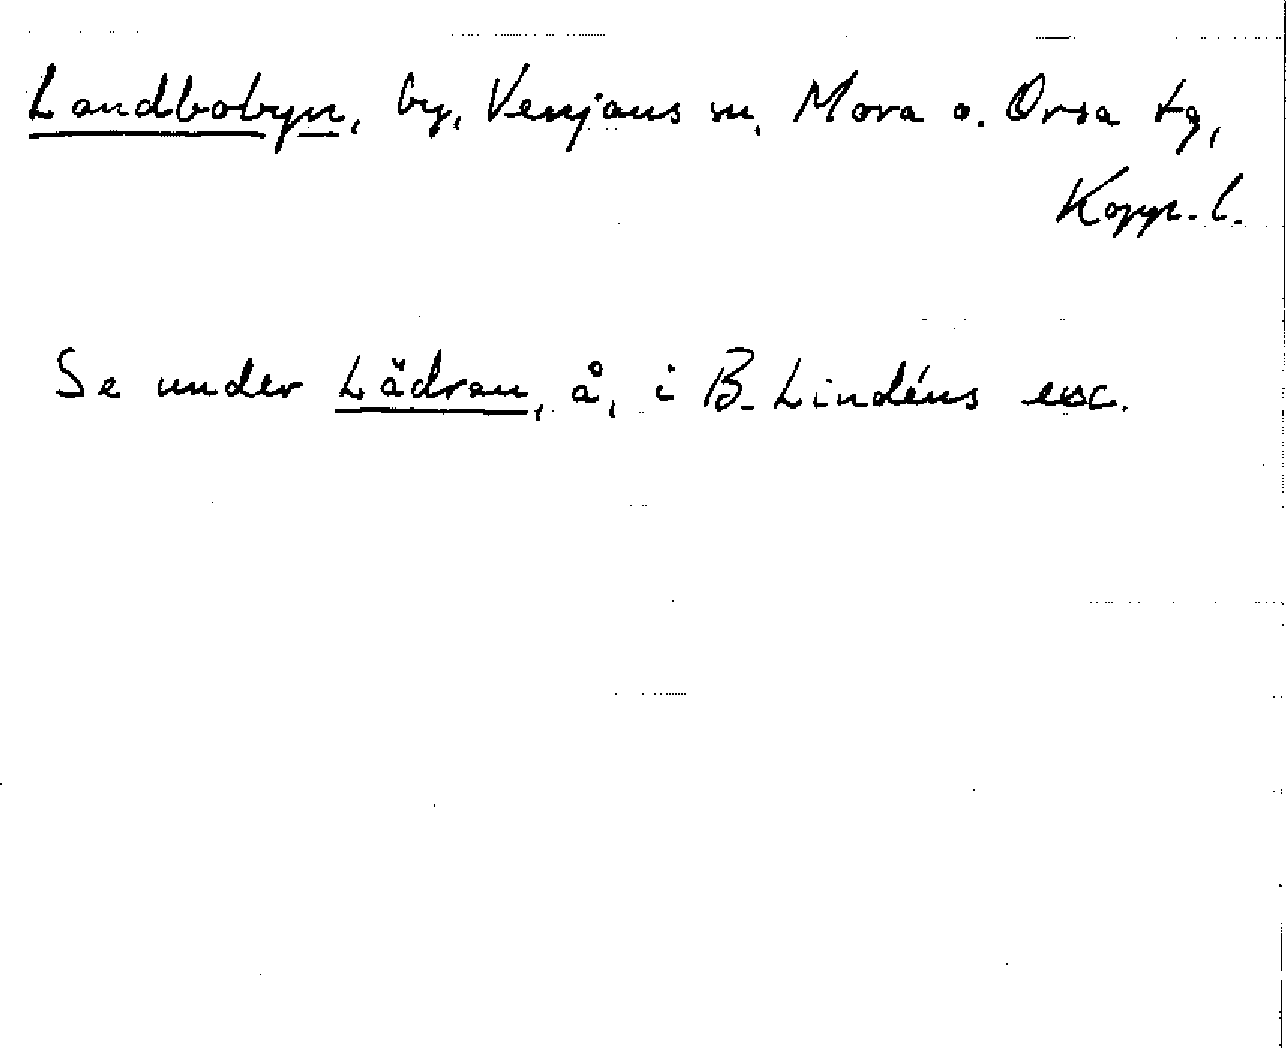 Landbobyn, by, Venjans sn, Mora o. Orsa tg,
Kopp. l.
Se under Lädran, å, i B. Lindéns exc.